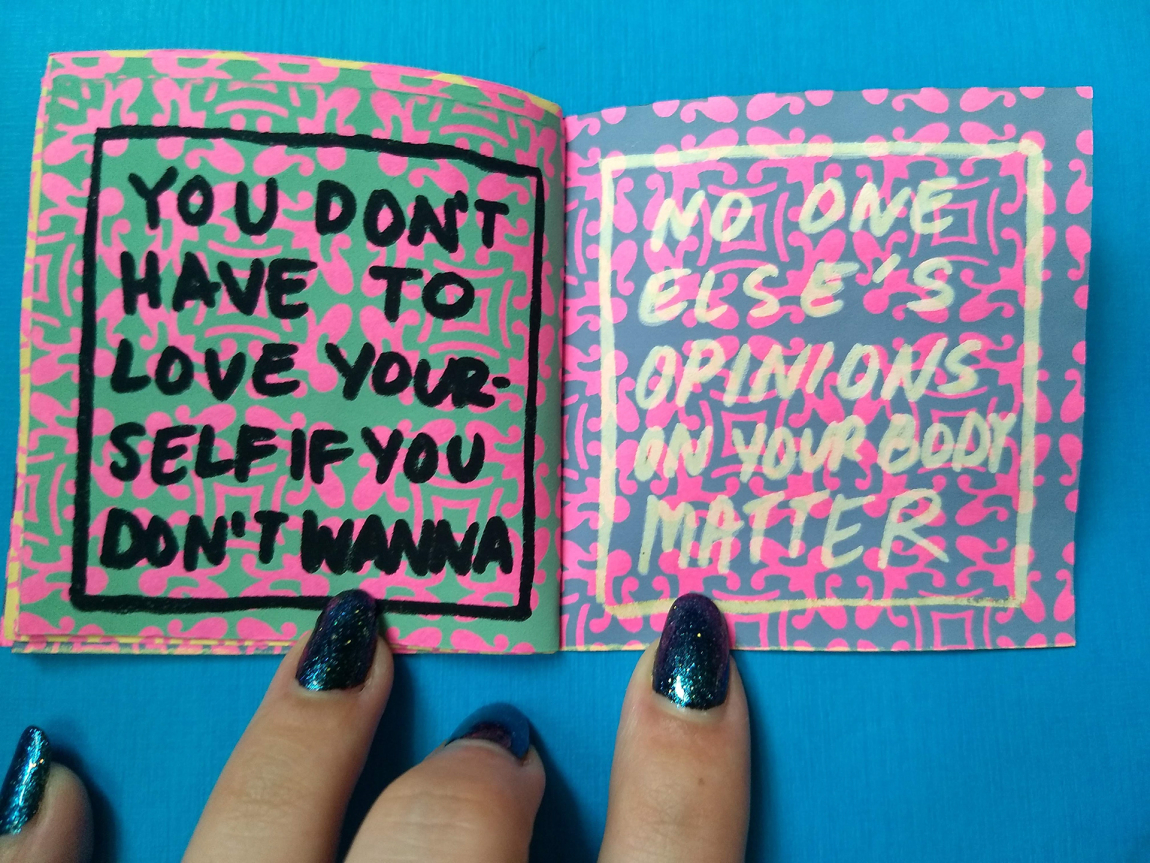 YOU DON'T
HAVE TO
LOVE YOUR-
SELF IF YOU
DON'T WANNA
NO ONE
ELSE'S
OPINIONS
ON YOUR BODY
MATTER